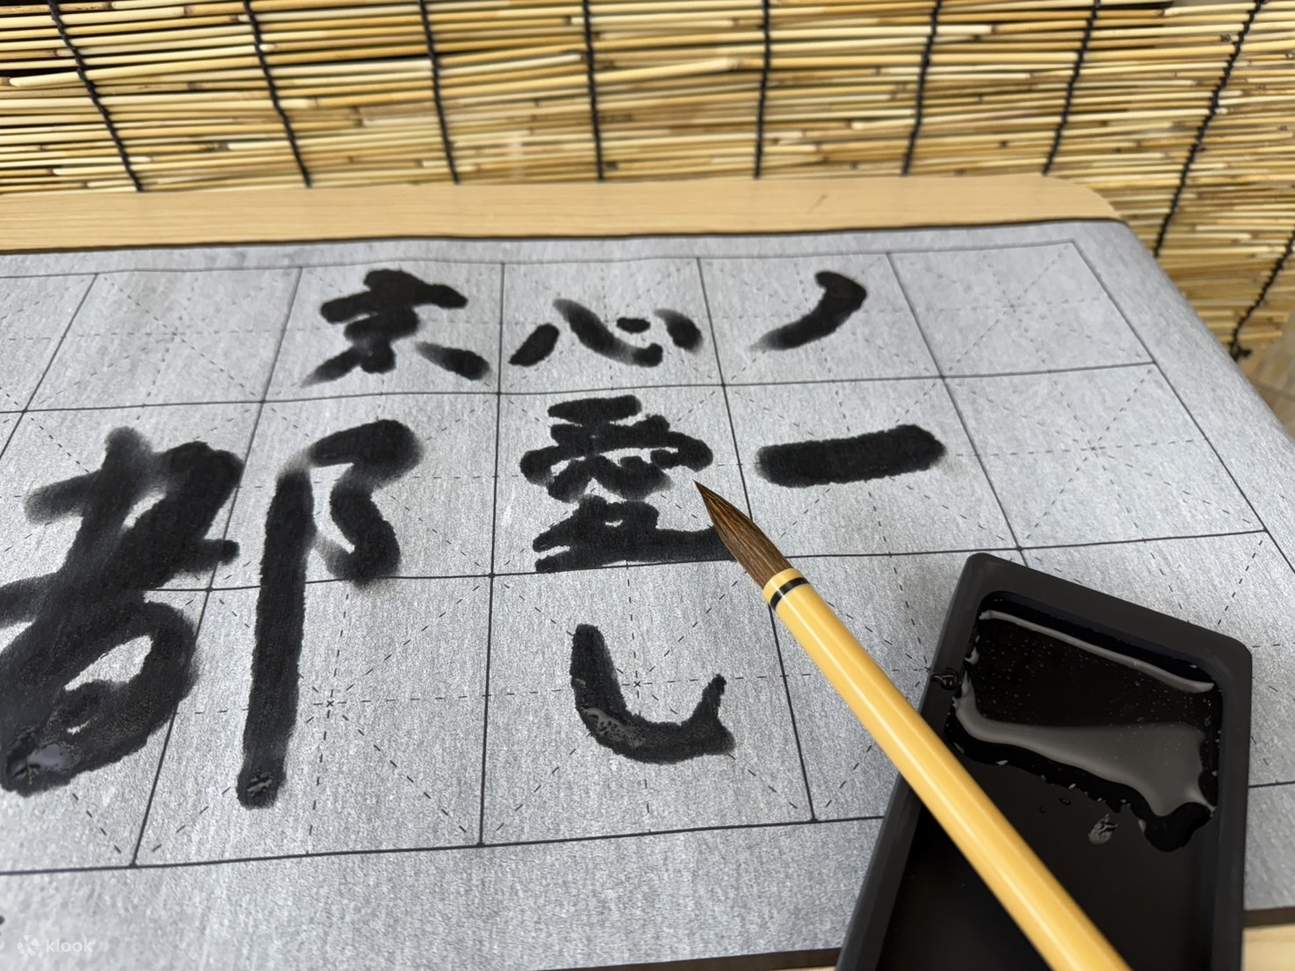 ノ一
心し
京都
klook